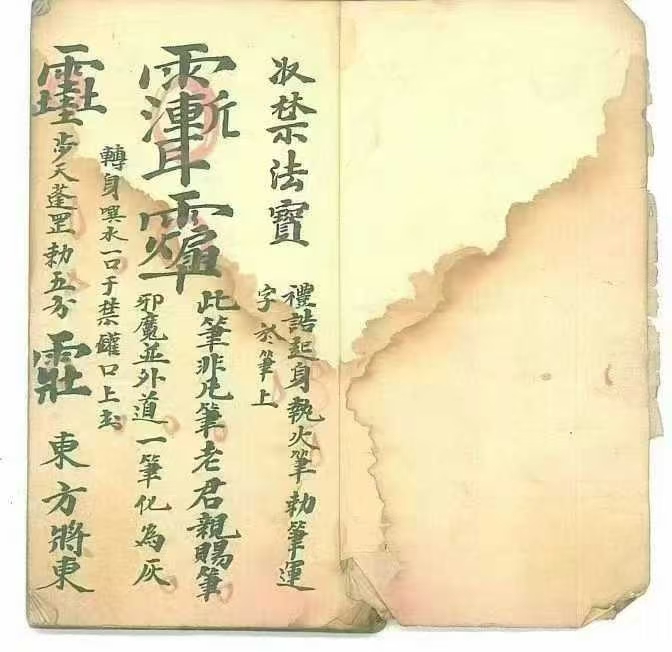 収禁法寶
禮誥起身執火筆勅筆運
字於筆上
此筆非凡筆老君親賜筆
邪魔並外道一筆化為灰
轉身噀水一口于禁罐口上書
步天蓬罡勅五方
東方將東